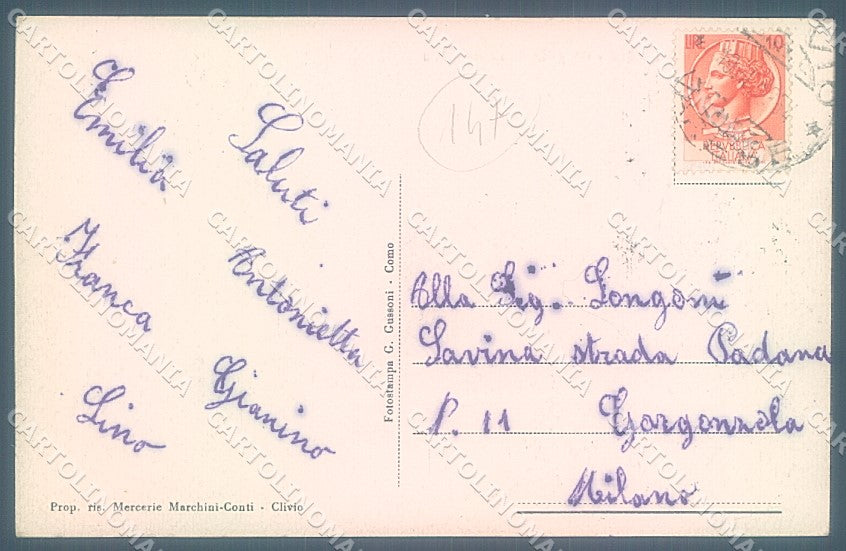 Saluti
Emilia
Antonietta
Franca
Gianino
Lino
147
LIRE 10
REPVBBLICA
ITALIANA
Alla Sig. Longoni
Savina strada Padana
N. 11 Gorgonzola
Milano
Fotostampa G. Cussoni - Como
Prop. ris. Mercerie Marchini-Conti - Clivio
CARTOLINOMANIA